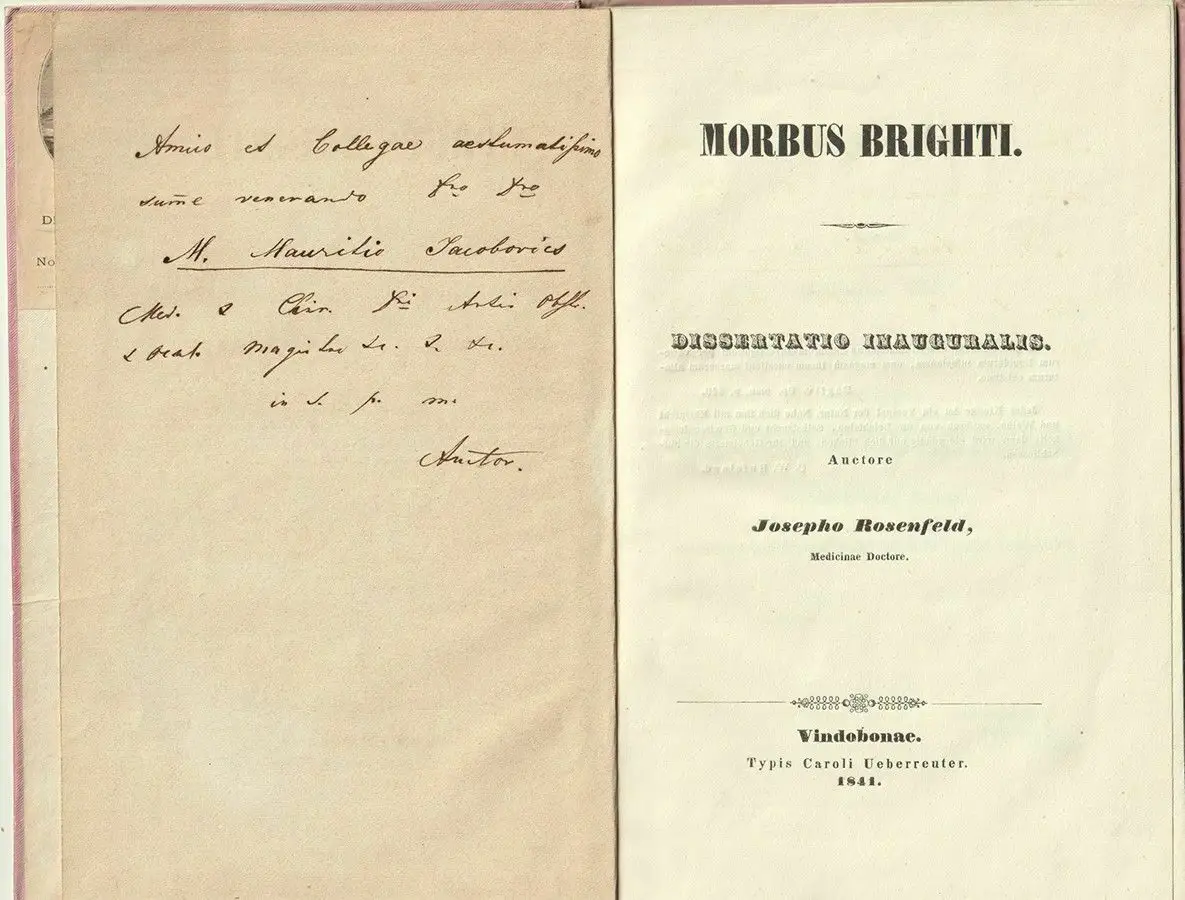 Amico et Collegae aestumatissimo
sume venerando Dro Dro
M. Mauritio Jacobovics
Med. & Chir. Dri Artis Obst.
& Ocul. Magistro &c. &c. &c.
in s. p. m.
Auctor.
D
No
MORBUS BRIGHTI.
DISSERTATIO INAUGURALIS.
Auctore
Josepho Rosenfeld,
Medicinae Doctore.
Vindobonae.
Typis Caroli Ueberreuter.
1841.